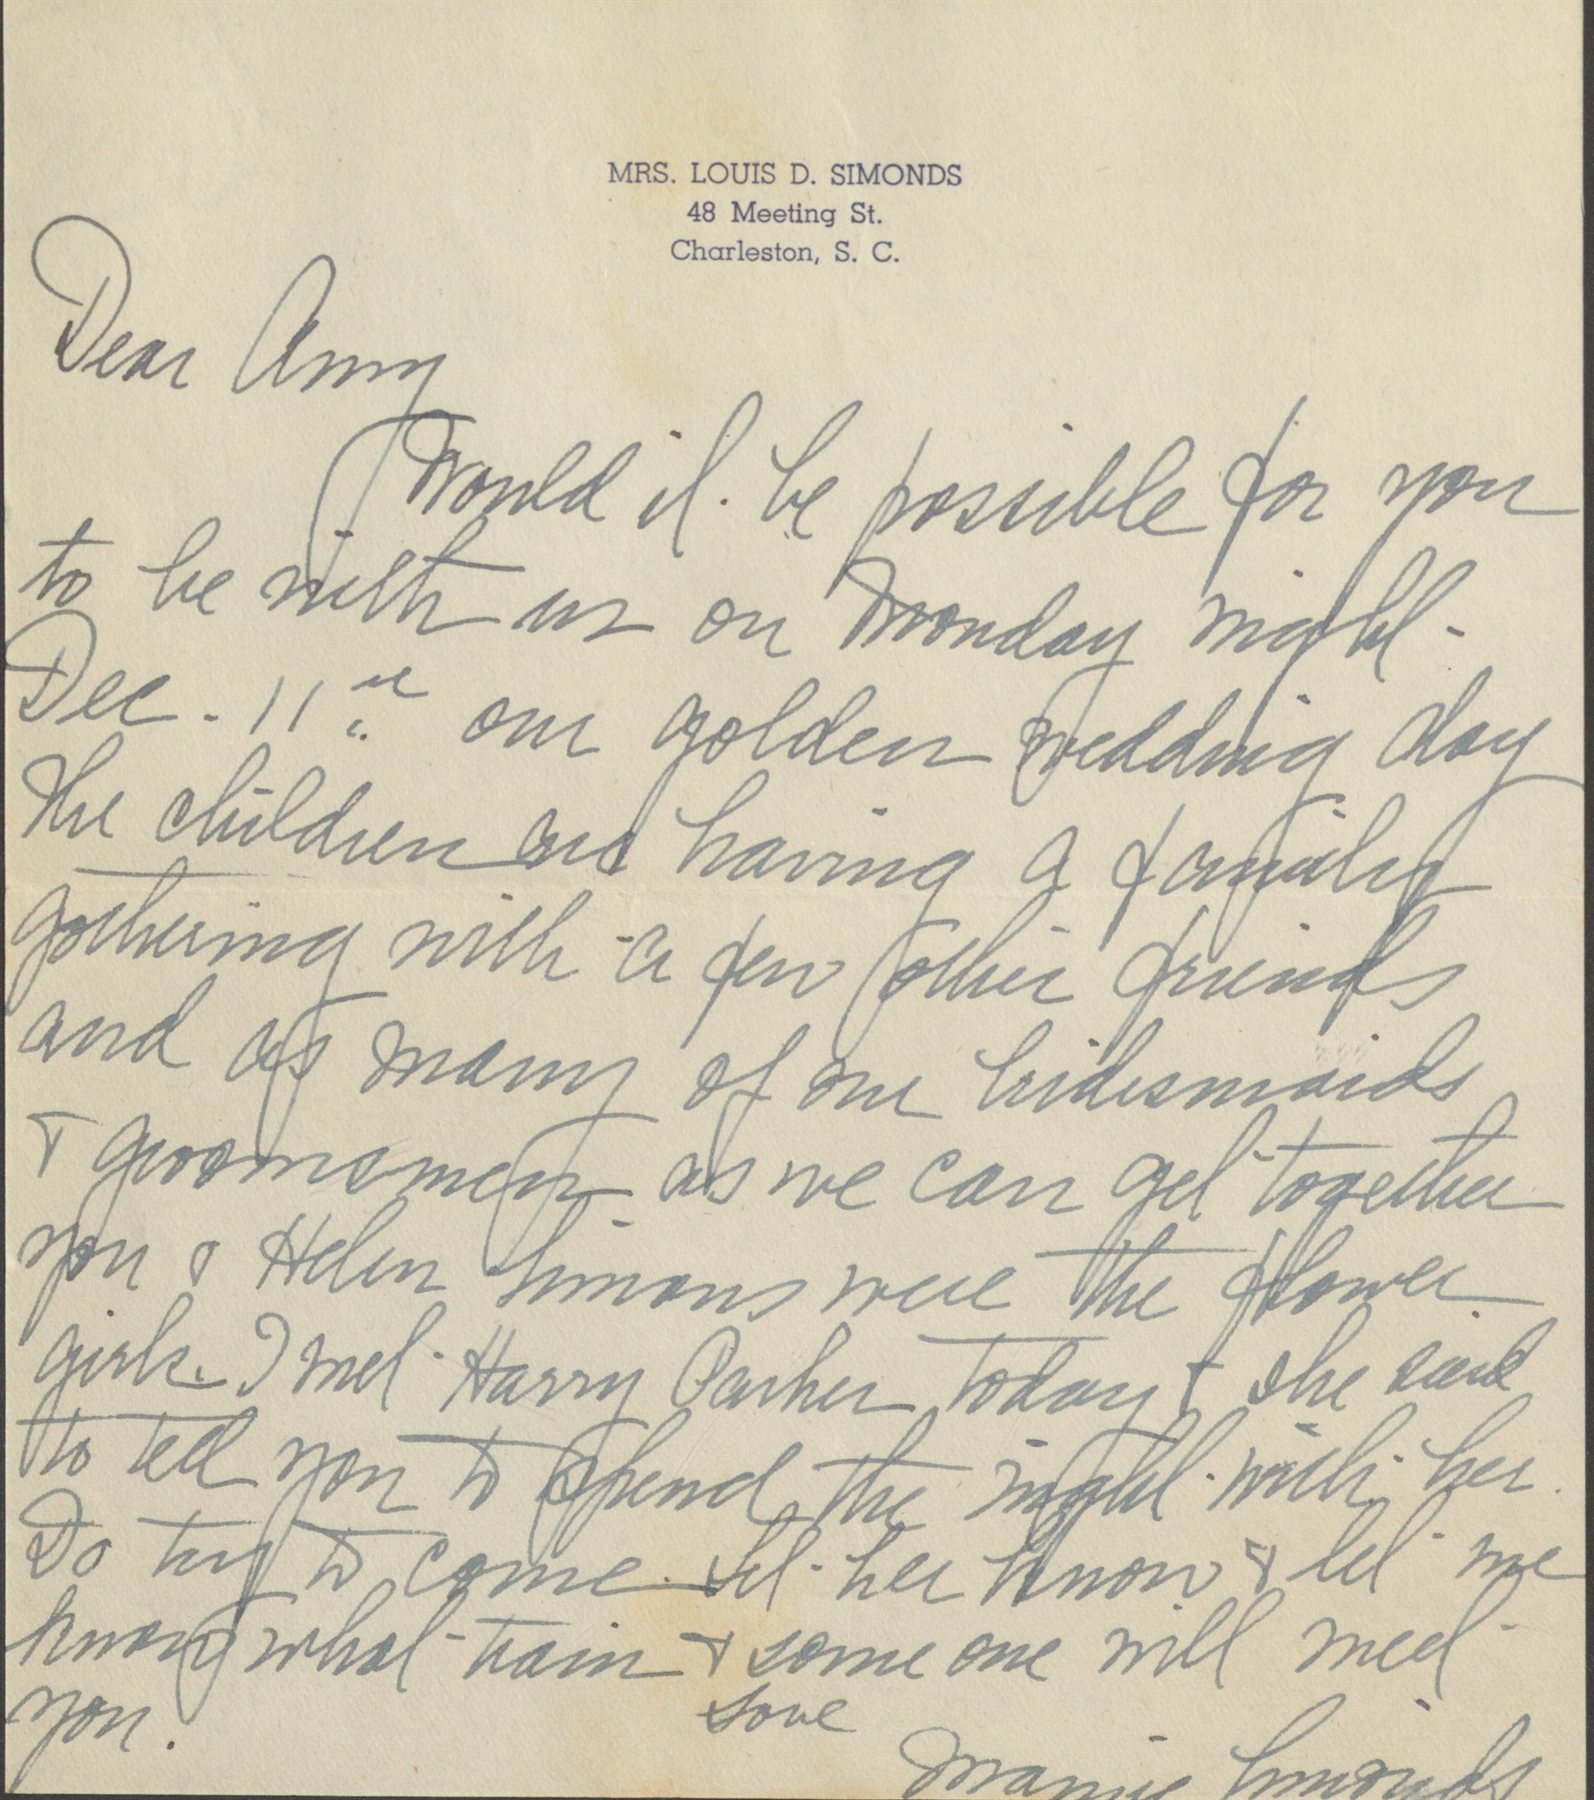 MRS. LOUIS D. SIMONDS
48 Meeting St.
Charleston, S. C.
Dear Amy
Would it be possible for you
to be with us on Monday night
Dec. 11th our golden wedding day
the children are having a family
gathering with a few other friends
and as many of our bridesmaids
& groomsmen as we can get together
you & Helen Simons were the flower
girls. I met Harry Parker today & she said
to tell you to spend the night with her.
Do try to come. Let her know & let me
know what train & some one will meet
you.
Love
Mamie Simonds